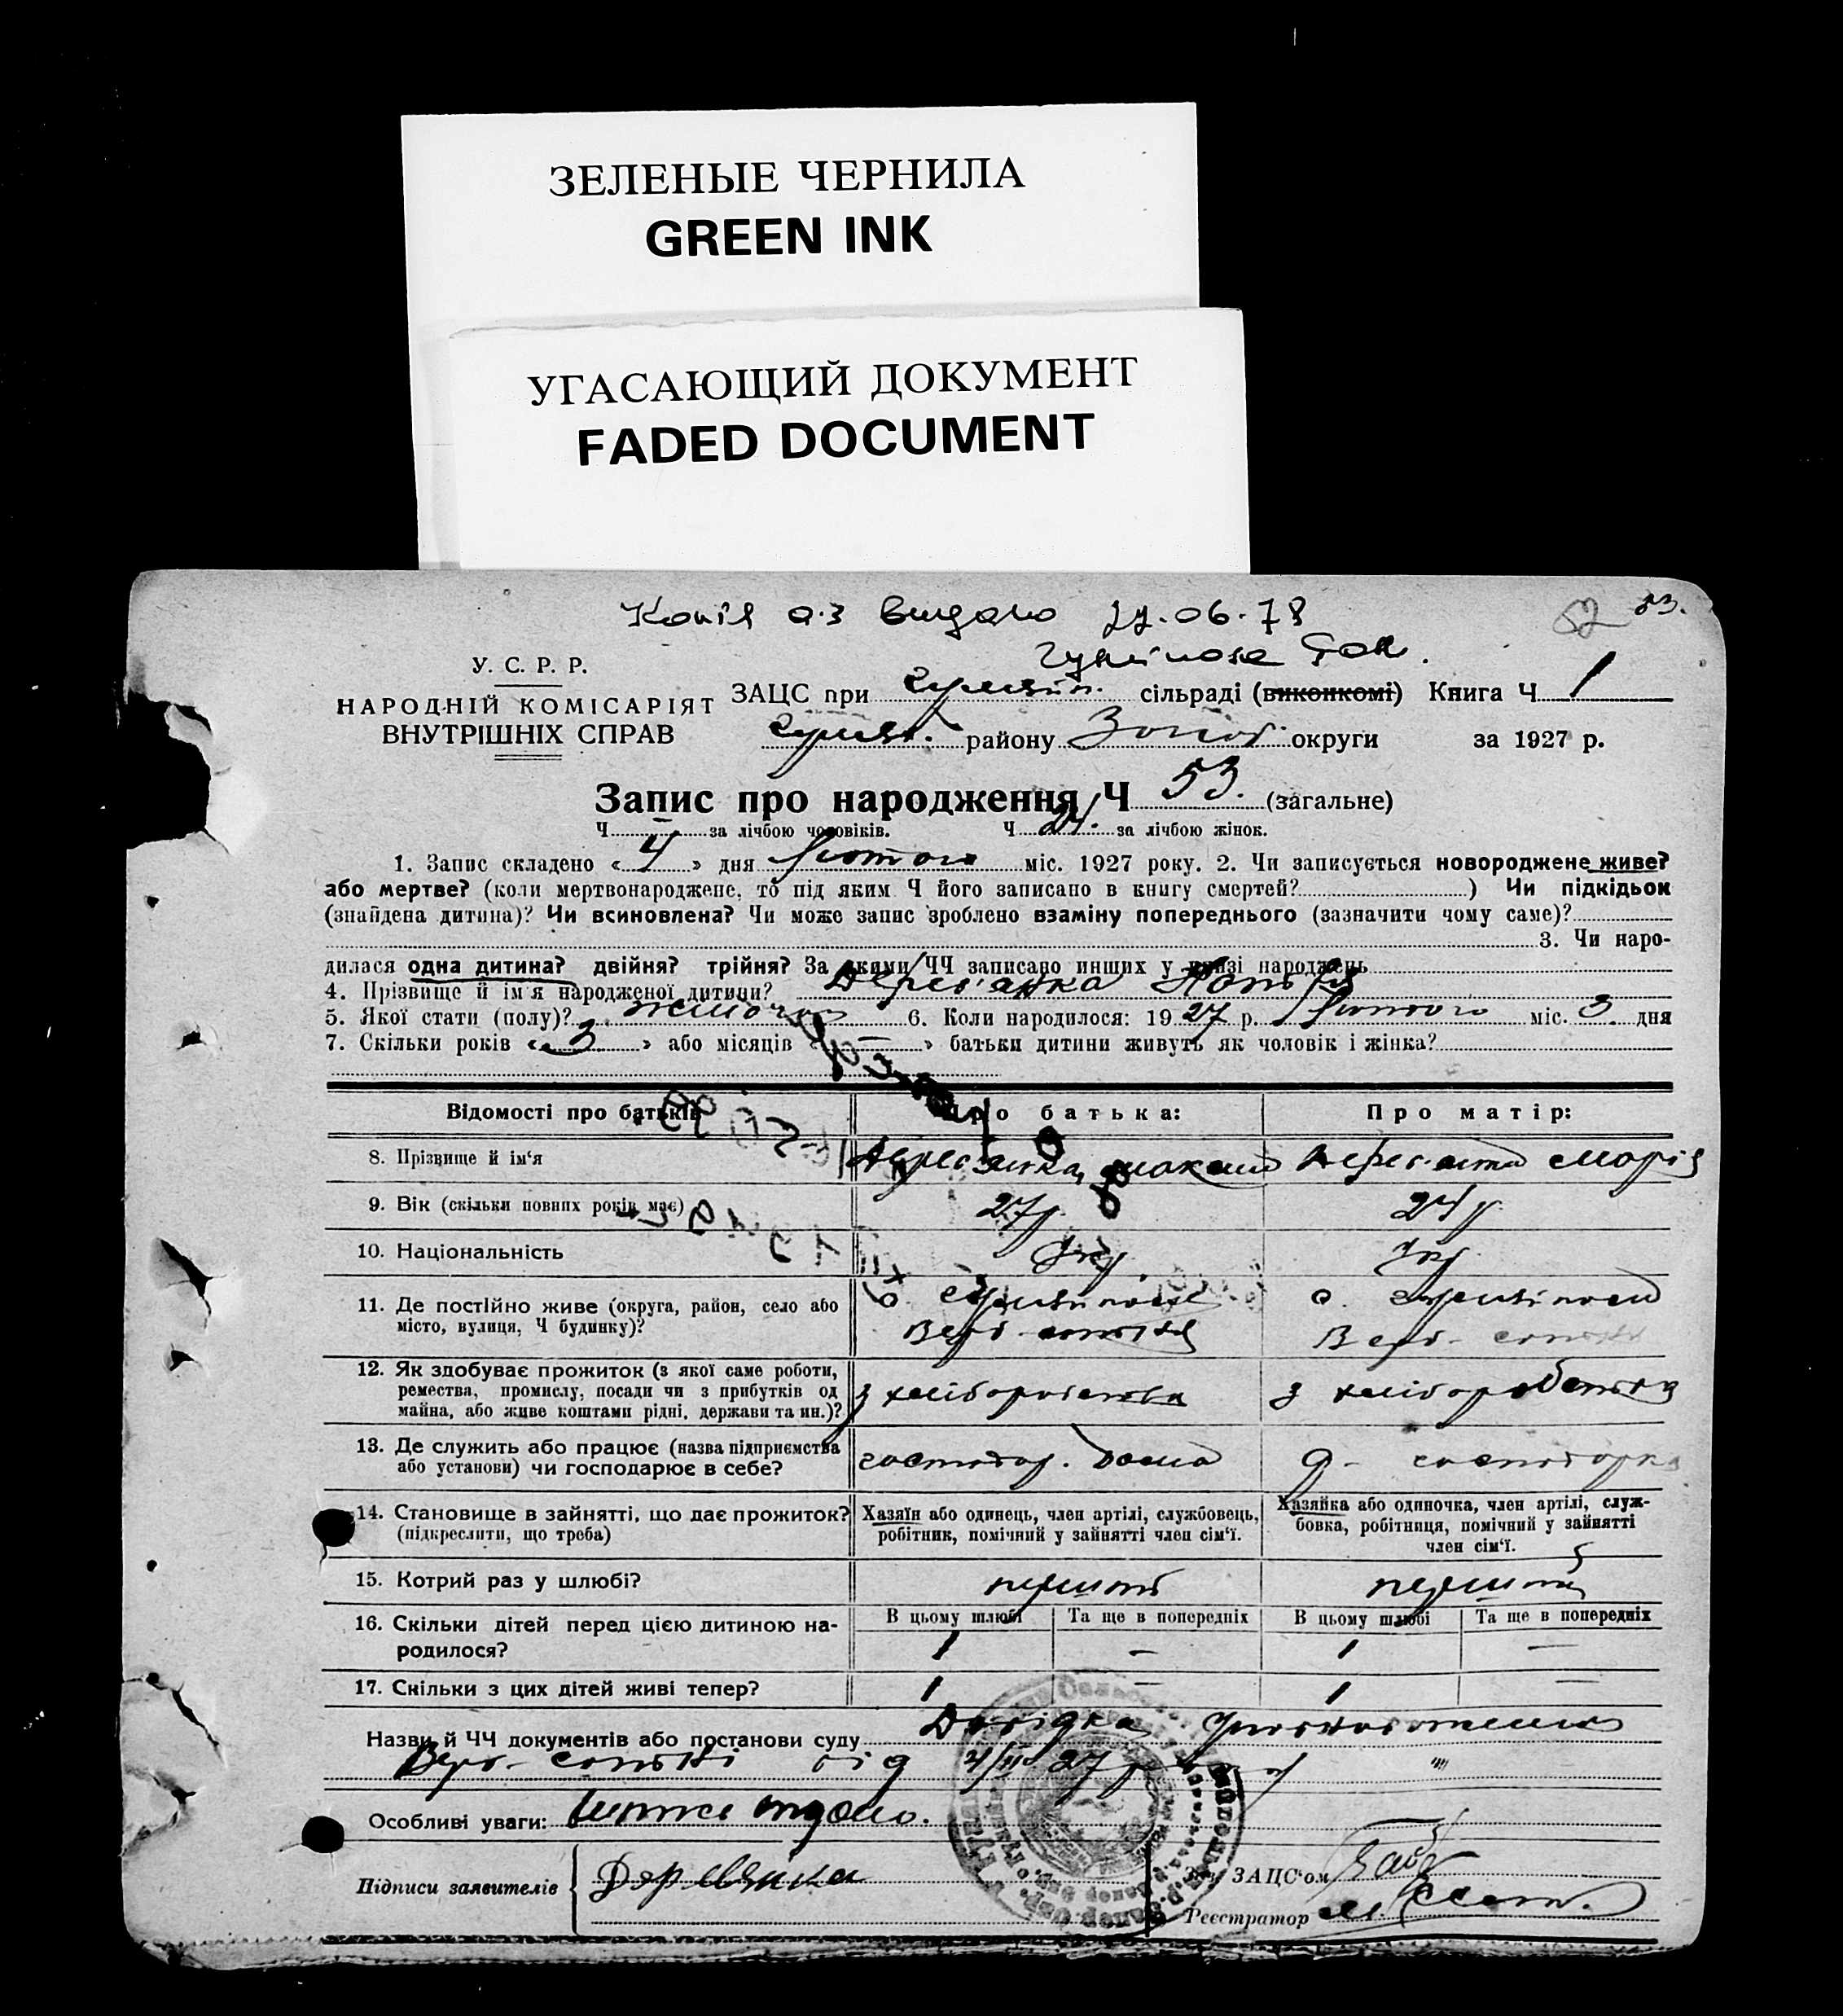 ЗЕЛЕНЫЕ ЧЕРНИЛА
GREEN INK
УГАСАЮЩИЙ ДОКУМЕНТ
FADED DOCUMENT
Копія а.з видано 27.06.78
53.
У. С. Р. Р.
НАРОДНІЙ КОМІСАРІЯТ
ВНУТРІШНІХ СПРАВ
ЗАЦС при сільраді (виконкомі) Книга Ч 1
району Золот. округи за 1927 р.
Запис про народження Ч 53. (загальне)
Ч — за лічбою чоловіків. Ч 24. за лічбою жінок.
1. Запис складено «4» дня лютого міс. 1927 року. 2. Чи записується новороджене живе?
або мертве? (коли мертвонароджене, то під яким Ч його записано в книгу смертей? ) Чи підкідьок
(знайдена дитина)? Чи всиновлена? Чи може запис зроблено взаміну попереднього (зазначити чому саме)?
3. Чи наро-
дилася одна дитина? двійня? трійня? За якими ЧЧ записано инших у книзі народжень
4. Прізвище й ім'я народженої дитини? Дерев'янка
5. Якої стати (полу)? жіночої 6. Коли народилося: 1927 р. лютого міс. 3. дня
7. Скільки років «3» або місяців «—» батьки дитини живуть як чоловік і жінка?
Відомості про батьків Про батька: Про матір:
8. Прізвище й ім'я Дерев'янка Максим Дерев'янко Марія
9. Вік (скільки повних років має) 27 р. 24 р.
10. Національність Укр. Укр.
11. Де постійно живе (округа, район, село або
місто, вулиця, Ч будинку)?
12. Як здобуває прожиток (з якої саме роботи,
ремества, промислу, посади чи з прибутків од
майна, або живе коштами рідні, держави та ин.)? з хліборобства з хліборобства
13. Де служить або працює (назва підприємства
або установи) чи господарює в себе? господар. дома д- господарка
14. Становище в зайнятті, що дає прожиток?
(підкреслити, що треба)
Хазяїн або одинець, член артілі, службовець,
робітник, помічний у зайнятті член сім'ї.
Хазяйка або одиночка, член артілі, служ-
бовка, робітниця, помічний у зайнятті
член сім'ї.
15. Котрий раз у шлюбі? перший перший
16. Скільки дітей перед цією дитиною на-
родилося?
В цьому шлюбі Та ще в попередніх В цьому шлюбі Та ще в попередніх
1 — 1 —
17. Скільки з цих дітей живі тепер? 1 — 1 —
Назви й ЧЧ документів або постанови суду Довідка Уповноваженого
Верх- сотні від 4/II 27 р.
Особливі уваги:
Підписи заявителів Деревянка
Зав. ЗАЦС'ом
Реєстратор